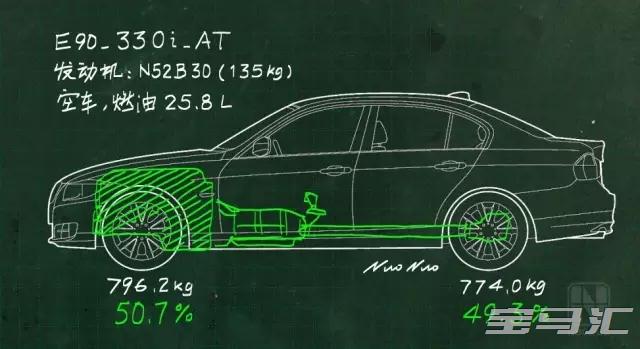 E90_330i_AT
发动机：N52B30 (135kg)
空车，燃油 25.8L
Nuo Nuo
796.2kg
774.0kg
50.7%
49.3%
宝马汇